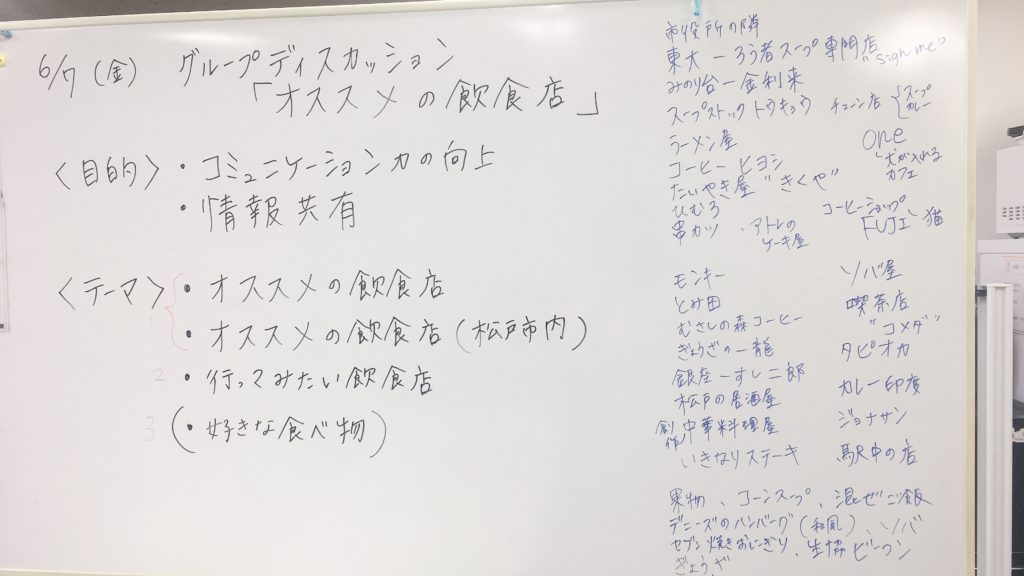 6/7(金) グループディスカッション
「オススメの飲食店」
〈目的〉・コミュニケーション力の向上
・情報共有
〈テーマ〉・オススメの飲食店
1 ・オススメの飲食店(松戸市内)
2 ・行ってみたい飲食店
3 (・好きな食べ物)
市役所の隣
東大ーろう者スープ専門店
"Sign me"
みのり台ー金利来
スープストックトウキョウ チェーン店 {スープ
カレー
ラーメン屋
one
コーヒー ヒヨシ
犬が入れる
カフェ
たいやき屋"きくや"
ひむろ
コーヒーショップ
FUJI 猫
串カツ ・アトレの
ケーキ屋
モンキー
とみ田
むさしの森コーヒー
ぎょうざの一龍
銀座ーすし二郎
松戸の居酒屋
創作中華料理屋
いきなりステーキ
ソバ屋
喫茶店
"コメダ"
タピオカ
カレー印度
ジョナサン
駅中の店
果物、コーンスープ、混ぜご飯
デニーズのハンバーグ(和風)、ソバ
セブン焼きおにぎり、生協ビーフン
ぎょうざ